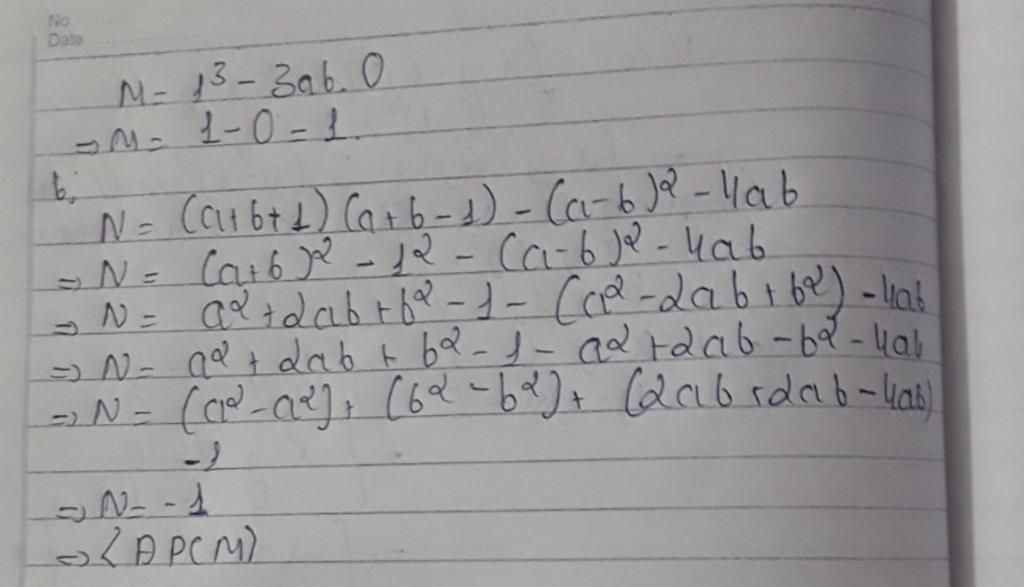 No.
Date
M = 1³ - 3ab. 0
=> M = 1 - 0 = 1.
b,
N = (a+b+1)(a+b-1) - (a-b)² - 4ab
=> N = (a+b)² - 1² - (a-b)² - 4ab
=> N = a² + 2ab + b² - 1 - (a² - 2ab + b²) - 4ab
=> N = a² + 2ab + b² - 1 - a² + 2ab - b² - 4ab
=> N = (a² - a²) + (b² - b²) + (2ab + 2ab - 4ab)
-1
=> N = -1
=> (ĐPCM)